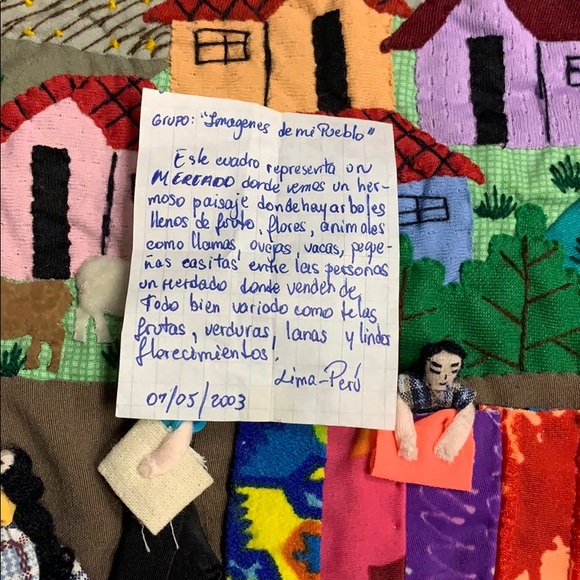 GRUPO: "Imagenes de mi Pueblo"
Este cuadro representa un
MERCADO donde vemos un her-
moso paisaje donde hay arboles
llenos de fruto, flores, animales
como llamas, ovejas, vacas, peque-
ñas casitas entre las personas
un Merdado donde venden de
Todo bien variado como telas
frutas, verduras, lanas y lindos
florecimientos.
Lima-Perú
07/05/2003